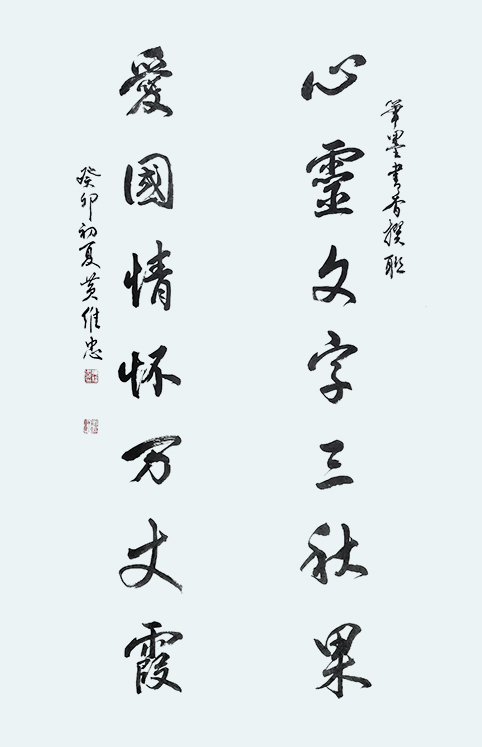 筆墨書香撰联
心靈文字三秋果
愛國情怀万丈霞
癸卯初夏黄維忠